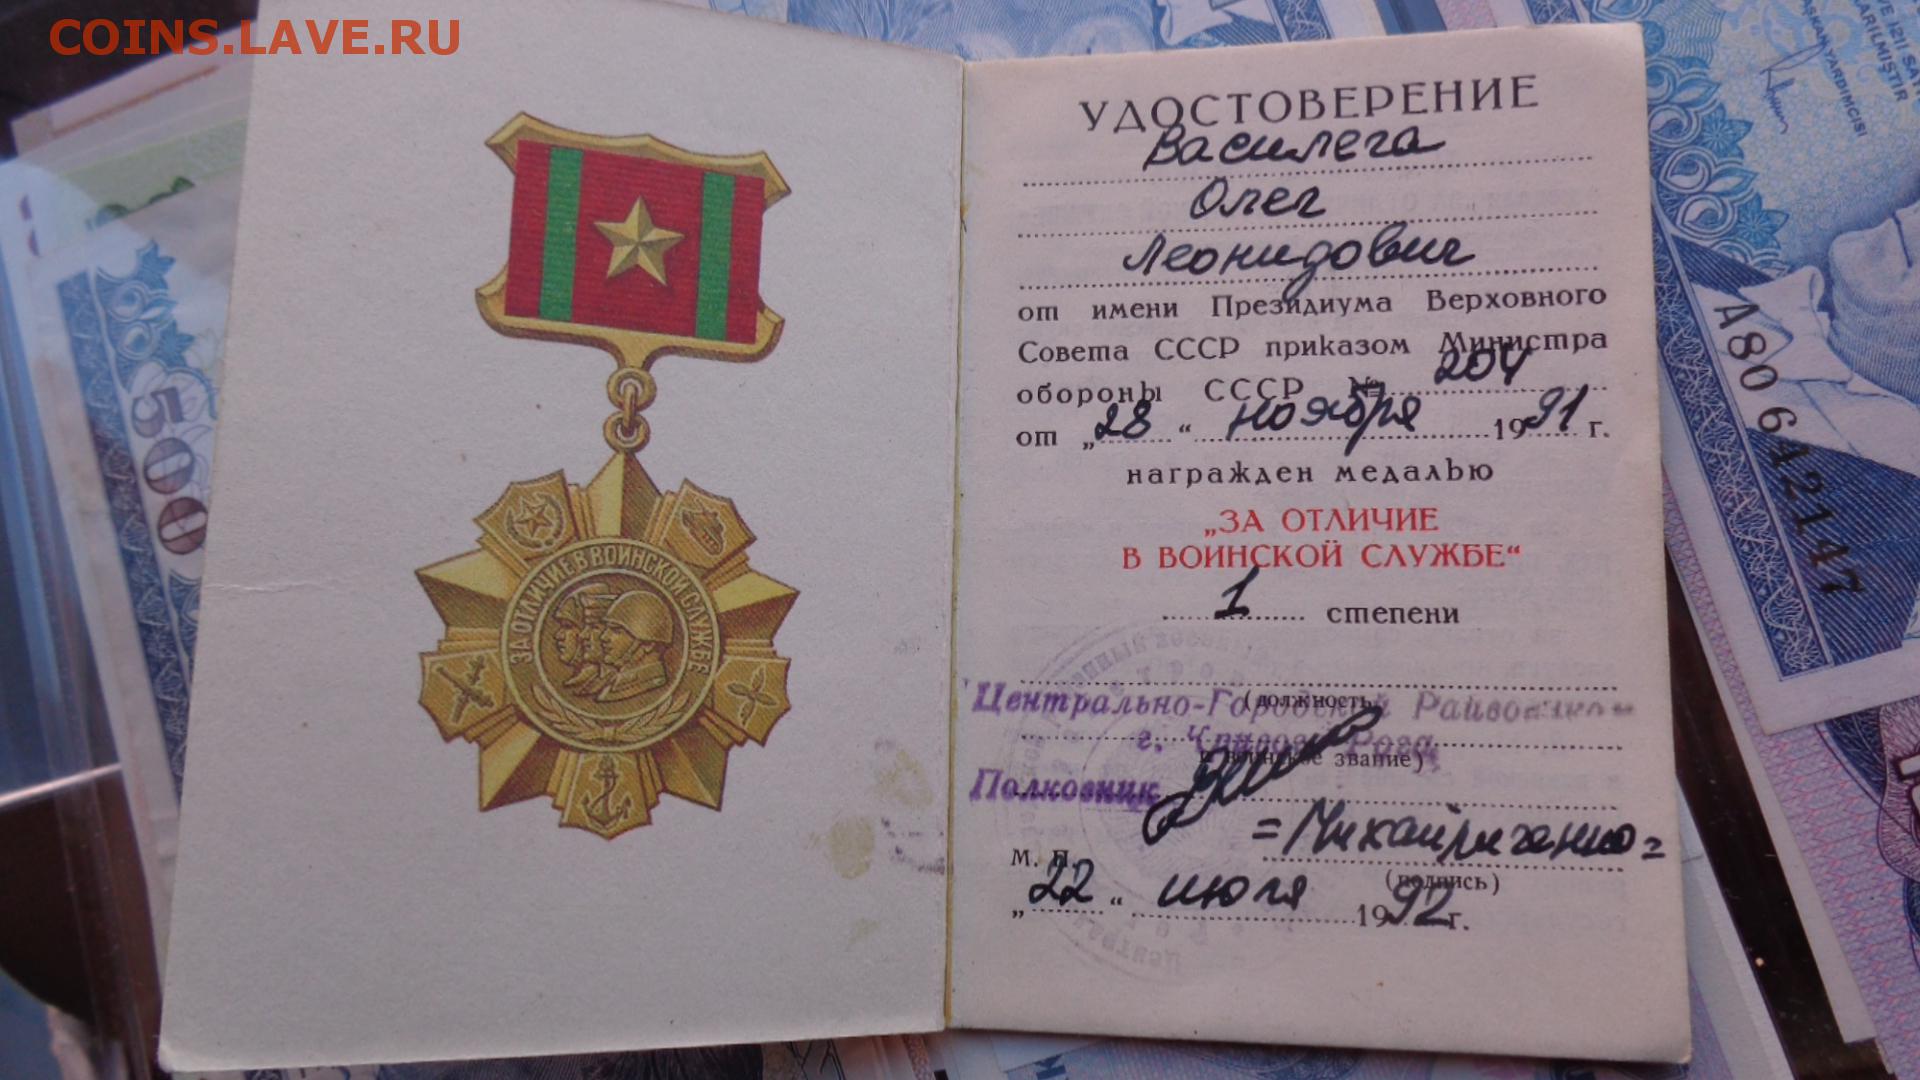 COINS.LAVE.RU
ЗА ОТЛИЧИЕ В ВОИНСКОЙ СЛУЖБЕ
УДОСТОВЕРЕНИЕ
Василега
Олег
Леонидович
от имени Президиума Верховного
Совета СССР приказом Министра
обороны СССР № 204
от „28“ ноября 1991 г.
награжден медалью
„ЗА ОТЛИЧИЕ
В ВОИНСКОЙ СЛУЖБЕ“
1 степени
(должность)
Центрально-Городской
г. Кривого Рога
воинское звание)
Полковник
М. П.
(подпись)
„22“ июля 1992 г.
500
A80 642147
BAŞKAN YARDIMCISI